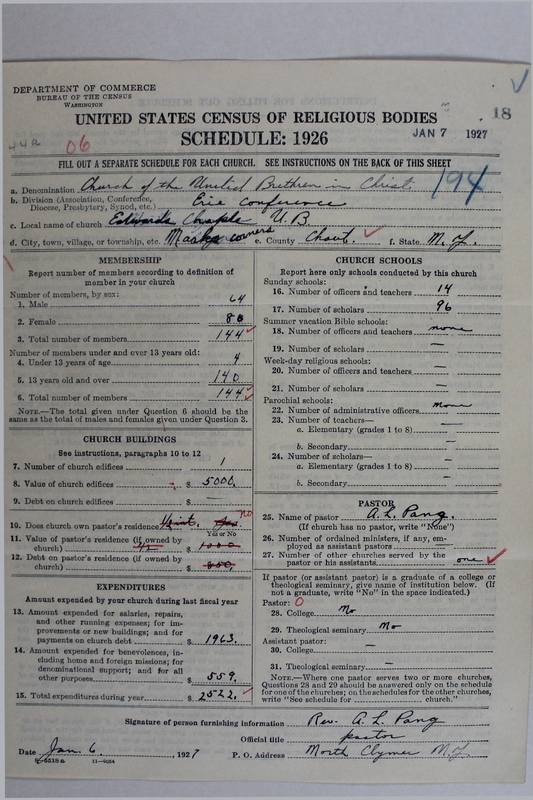 DEPARTMENT OF COMMERCE
BUREAU OF THE CENSUS
WASHINGTON
18
UNITED STATES CENSUS OF RELIGIOUS BODIES
SCHEDULE: 1926
JAN 7 1927
06
FILL OUT A SEPARATE SCHEDULE FOR EACH CHURCH. SEE INSTRUCTIONS ON THE BACK OF THIS SHEET
194
a. Denomination Church of the United Brethren in Christ
b. Division (Association, Conference, Diocese, Presbytery, Synod, etc.) Erie Conference
c. Local name of church Edwards Chapel U.B.
d. City, town, village, or township, etc. corners e. County Chaut. f. State N.Y.
MEMBERSHIP
Report number of members according to definition of member in your church
Number of members, by sex:
1. Male 64
2. Female 80
3. Total number of members 144
Number of members under and over 13 years old:
4. Under 13 years of age 4
5. 13 years old and over 140
6. Total number of members 144
NOTE.—The total given under Question 6 should be the same as the total of males and females given under Question 3.
CHURCH BUILDINGS
See instructions, paragraphs 10 to 12
7. Number of church edifices 1
8. Value of church edifices $ 5000.
9. Debt on church edifices $ —
10. Does church own pastor's residence? Yes no
Yes or No
11. Value of pastor's residence (if owned by church) 1/2 $ 1000
12. Debt on pastor's residence (if owned by church) $ 800
EXPENDITURES
Amount expended by your church during last fiscal year
13. Amount expended for salaries, repairs, and other running expenses; for improvements or new buildings; and for payments on church debt $ 1963.
14. Amount expended for benevolences, including home and foreign missions; for denominational support; and for all other purposes $ 559.
15. Total expenditures during year $ 2522.
CHURCH SCHOOLS
Report here only schools conducted by this church
Sunday schools:
16. Number of officers and teachers 14
17. Number of scholars 96
Summer vacation Bible schools:
18. Number of officers and teachers none
19. Number of scholars —
Week-day religious schools:
20. Number of officers and teachers —
21. Number of scholars —
Parochial schools:
22. Number of administrative officers none
23. Number of teachers—
a. Elementary (grades 1 to 8) —
b. Secondary —
24. Number of scholars—
a. Elementary (grades 1 to 8) —
b. Secondary —
PASTOR
25. Name of pastor A. L. Pang.
(If church has no pastor, write "None")
26. Number of ordained ministers, if any, employed as assistant pastors —
27. Number of other churches served by the pastor or his assistants one
If pastor (or assistant pastor) is a graduate of a college or theological seminary, give name of institution below. (If not a graduate, write "No" in the space indicated.)
Pastor: 0
28. College No
29. Theological seminary No
Assistant pastor:
30. College —
31. Theological seminary —
NOTE.—Where one pastor serves two or more churches, Questions 28 and 29 should be answered only on the schedule for one of the churches; on the schedules for the other churches, write "See schedule for ........ church."
Signature of person furnishing information Rev. A. L. Pang
Official title pastor
Date Jan. 6, 1927 P. O. Address North Clymer N.Y.
11—9054